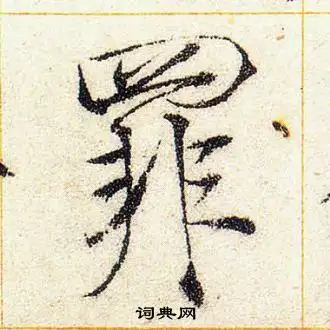 罪
词典网